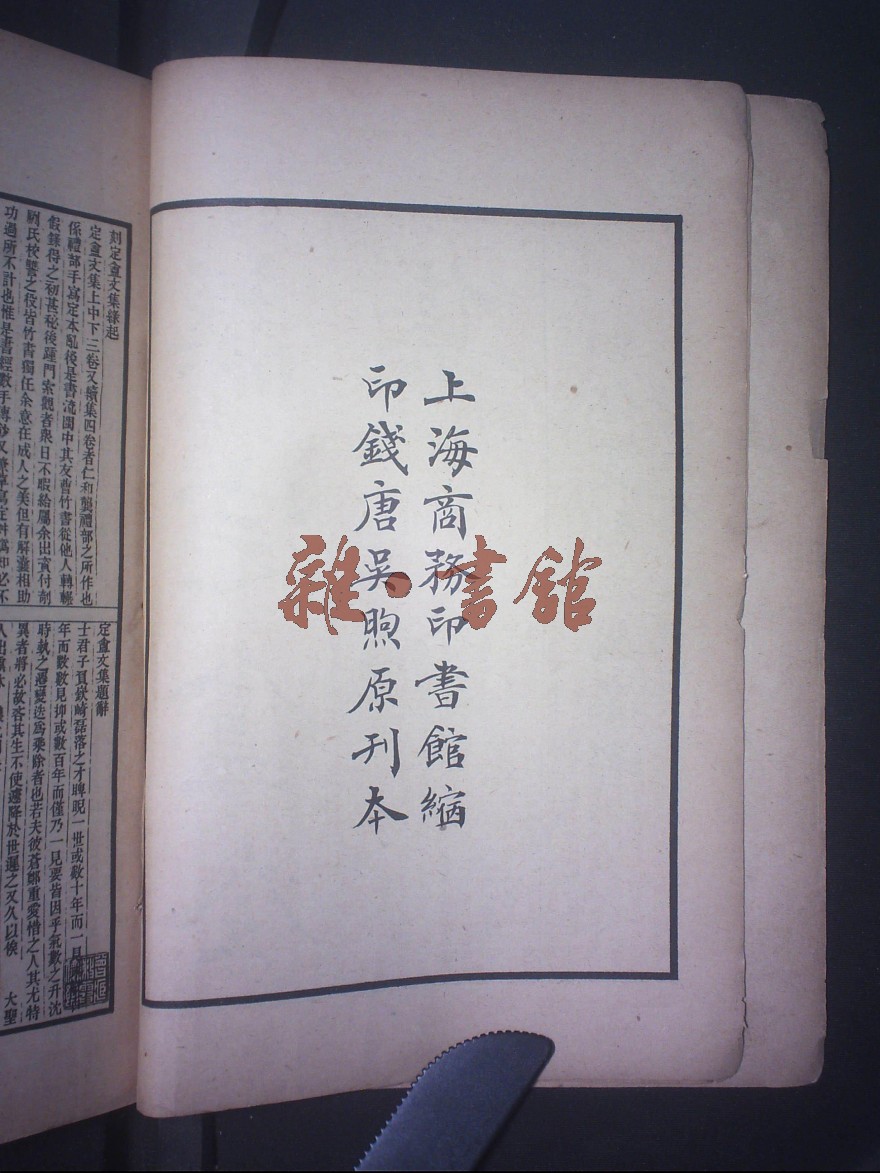 上海商務印書館縮
印錢唐吳煦原刊本
雜·書館
刻定盦文集緣起
定盦文集上中下三卷又續集四卷者仁和龔禮部之所作也
係禮部手寫定本亂後是書流閩中其友曹竹書從他人轉帳
假錄得之初甚秘後踵門索觀者衆日不暇給屬余出貲付剞
劂氏校讐之役皆竹書獨任余意在成人之美但有解囊相助
功過所不計也惟是書經數手傳鈔又
定盦文集題辭
士君子負嶔崎磊落之才睥睨一世或數十年而一見
年而數數見抑或數百年而僅乃一見要皆因乎氣數之升沈
時執之遷變迭爲乘除者也若夫彼蒼鄭重愛惜之人其尤特
異者將必故吝其生不使遽降於世遲之又久以俟 大聖
人出